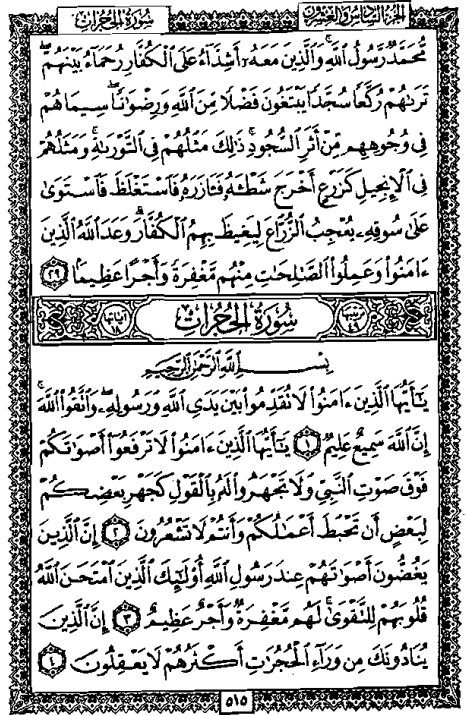 سُورَةُ الحُجُرَاتِ
الجُزْءُ السَّادِسُ وَالعِشْرُونَ
مُّحَمَّدٌ رَّسُولُ اللَّهِ وَالَّذِينَ مَعَهُ أَشِدَّاءُ عَلَى الْكُفَّارِ رُحَمَاءُ بَيْنَهُمْ
تَرَىٰهُمْ رُكَّعًا سُجَّدًا يَبْتَغُونَ فَضْلًا مِّنَ اللَّهِ وَرِضْوَٰنًا سِيمَاهُمْ
فِى وُجُوهِهِم مِّنْ أَثَرِ السُّجُودِ ذَٰلِكَ مَثَلُهُمْ فِى التَّوْرَىٰةِ وَمَثَلُهُمْ
فِى الْإِنجِيلِ كَزَرْعٍ أَخْرَجَ شَطْـَٔهُ فَـَٔازَرَهُ فَاسْتَغْلَظَ فَاسْتَوَىٰ
عَلَىٰ سُوقِهِ يُعْجِبُ الزُّرَّاعَ لِيَغِيظَ بِهِمُ الْكُفَّارَ وَعَدَ اللَّهُ الَّذِينَ
ءَامَنُوا وَعَمِلُوا الصَّٰلِحَٰتِ مِنْهُم مَّغْفِرَةً وَأَجْرًا عَظِيمًا ٢٩
ترتيبها ٤٩ سُورَةُ الحُجُرَاتِ آياتها ١٨
بِسْمِ اللَّهِ الرَّحْمَٰنِ الرَّحِيمِ
يَٰٓأَيُّهَا الَّذِينَ ءَامَنُوا لَا تُقَدِّمُوا بَيْنَ يَدَىِ اللَّهِ وَرَسُولِهِ وَاتَّقُوا اللَّهَ
إِنَّ اللَّهَ سَمِيعٌ عَلِيمٌ ١ يَٰٓأَيُّهَا الَّذِينَ ءَامَنُوا لَا تَرْفَعُوا أَصْوَٰتَكُمْ
فَوْقَ صَوْتِ النَّبِىِّ وَلَا تَجْهَرُوا لَهُ بِالْقَوْلِ كَجَهْرِ بَعْضِكُمْ
لِبَعْضٍ أَن تَحْبَطَ أَعْمَٰلُكُمْ وَأَنتُمْ لَا تَشْعُرُونَ ٢ إِنَّ الَّذِينَ
يَغُضُّونَ أَصْوَٰتَهُمْ عِندَ رَسُولِ اللَّهِ أُولَٰٓئِكَ الَّذِينَ امْتَحَنَ اللَّهُ
قُلُوبَهُمْ لِلتَّقْوَىٰ لَهُم مَّغْفِرَةٌ وَأَجْرٌ عَظِيمٌ ٣ إِنَّ الَّذِينَ
يُنَادُونَكَ مِن وَرَاءِ الْحُجُرَٰتِ أَكْثَرُهُمْ لَا يَعْقِلُونَ ٤
٥١٥